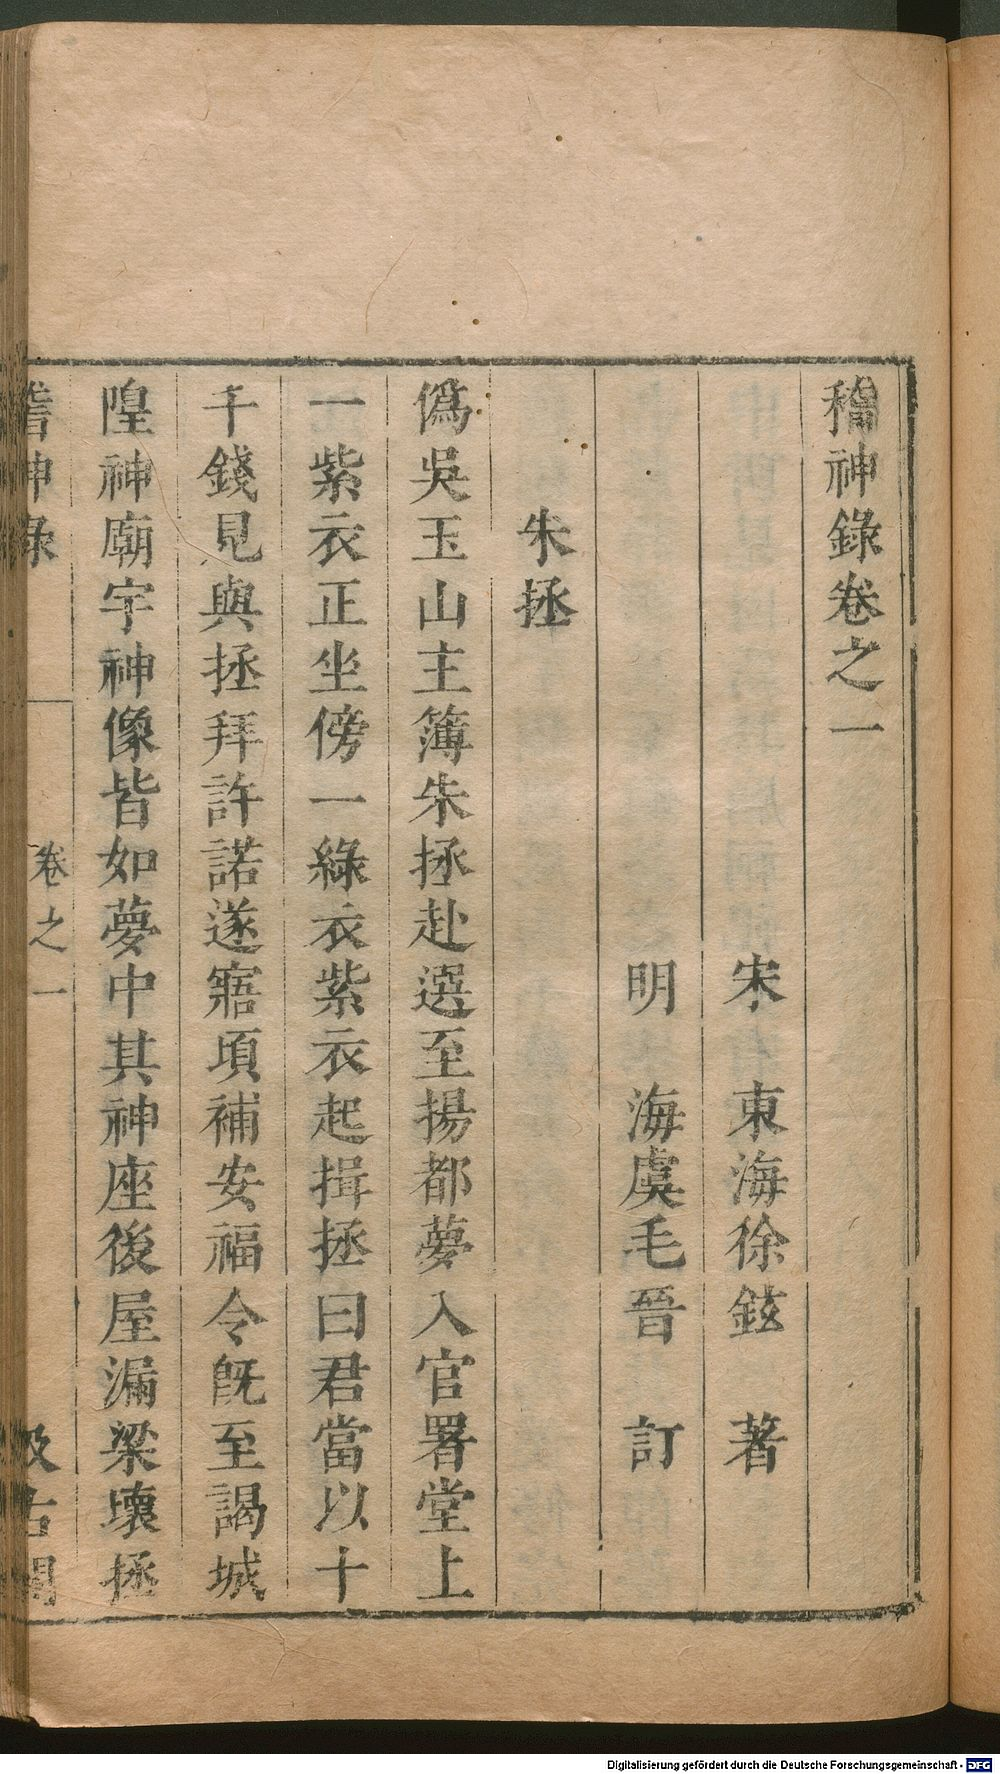 稽神錄卷之一
宋 東海徐鉉 著
明 海虞毛晉 訂
朱拯
僞吳玉山主簿朱拯赴選至揚都夢入官署堂上
一紫衣正坐傍一綠衣紫衣起揖拯曰君當以十
千錢見與拯拜許諾遂寤頃補安福令旣至謁城
隍神廟宇神像皆如夢中其神座後屋漏梁壞拯
稽神錄 卷之一 汲古閣
Digitalisierung gefördert durch die Deutsche Forschungsgemeinschaft - DFG